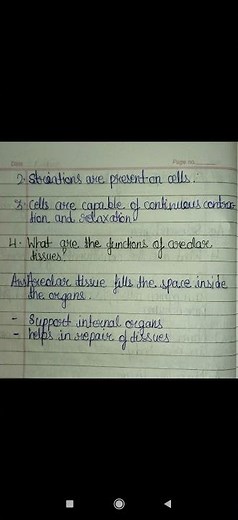 Page no.
2. Striations are present on cells.
3. Cells are capable of continuous contrac-
tion and relaxation
4. What are the functions of areolar
tissues?
Ans Areolar tissue fills the space inside
the organs.
- Support internal organs
- helps in repair of tissues